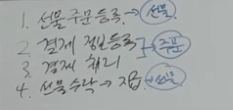 1. 선물 주문 등록 → 선물
2. 결제 정보 등록 → 주문
3. 결제 처리
4. 선물 수락 → 지급 → 선물